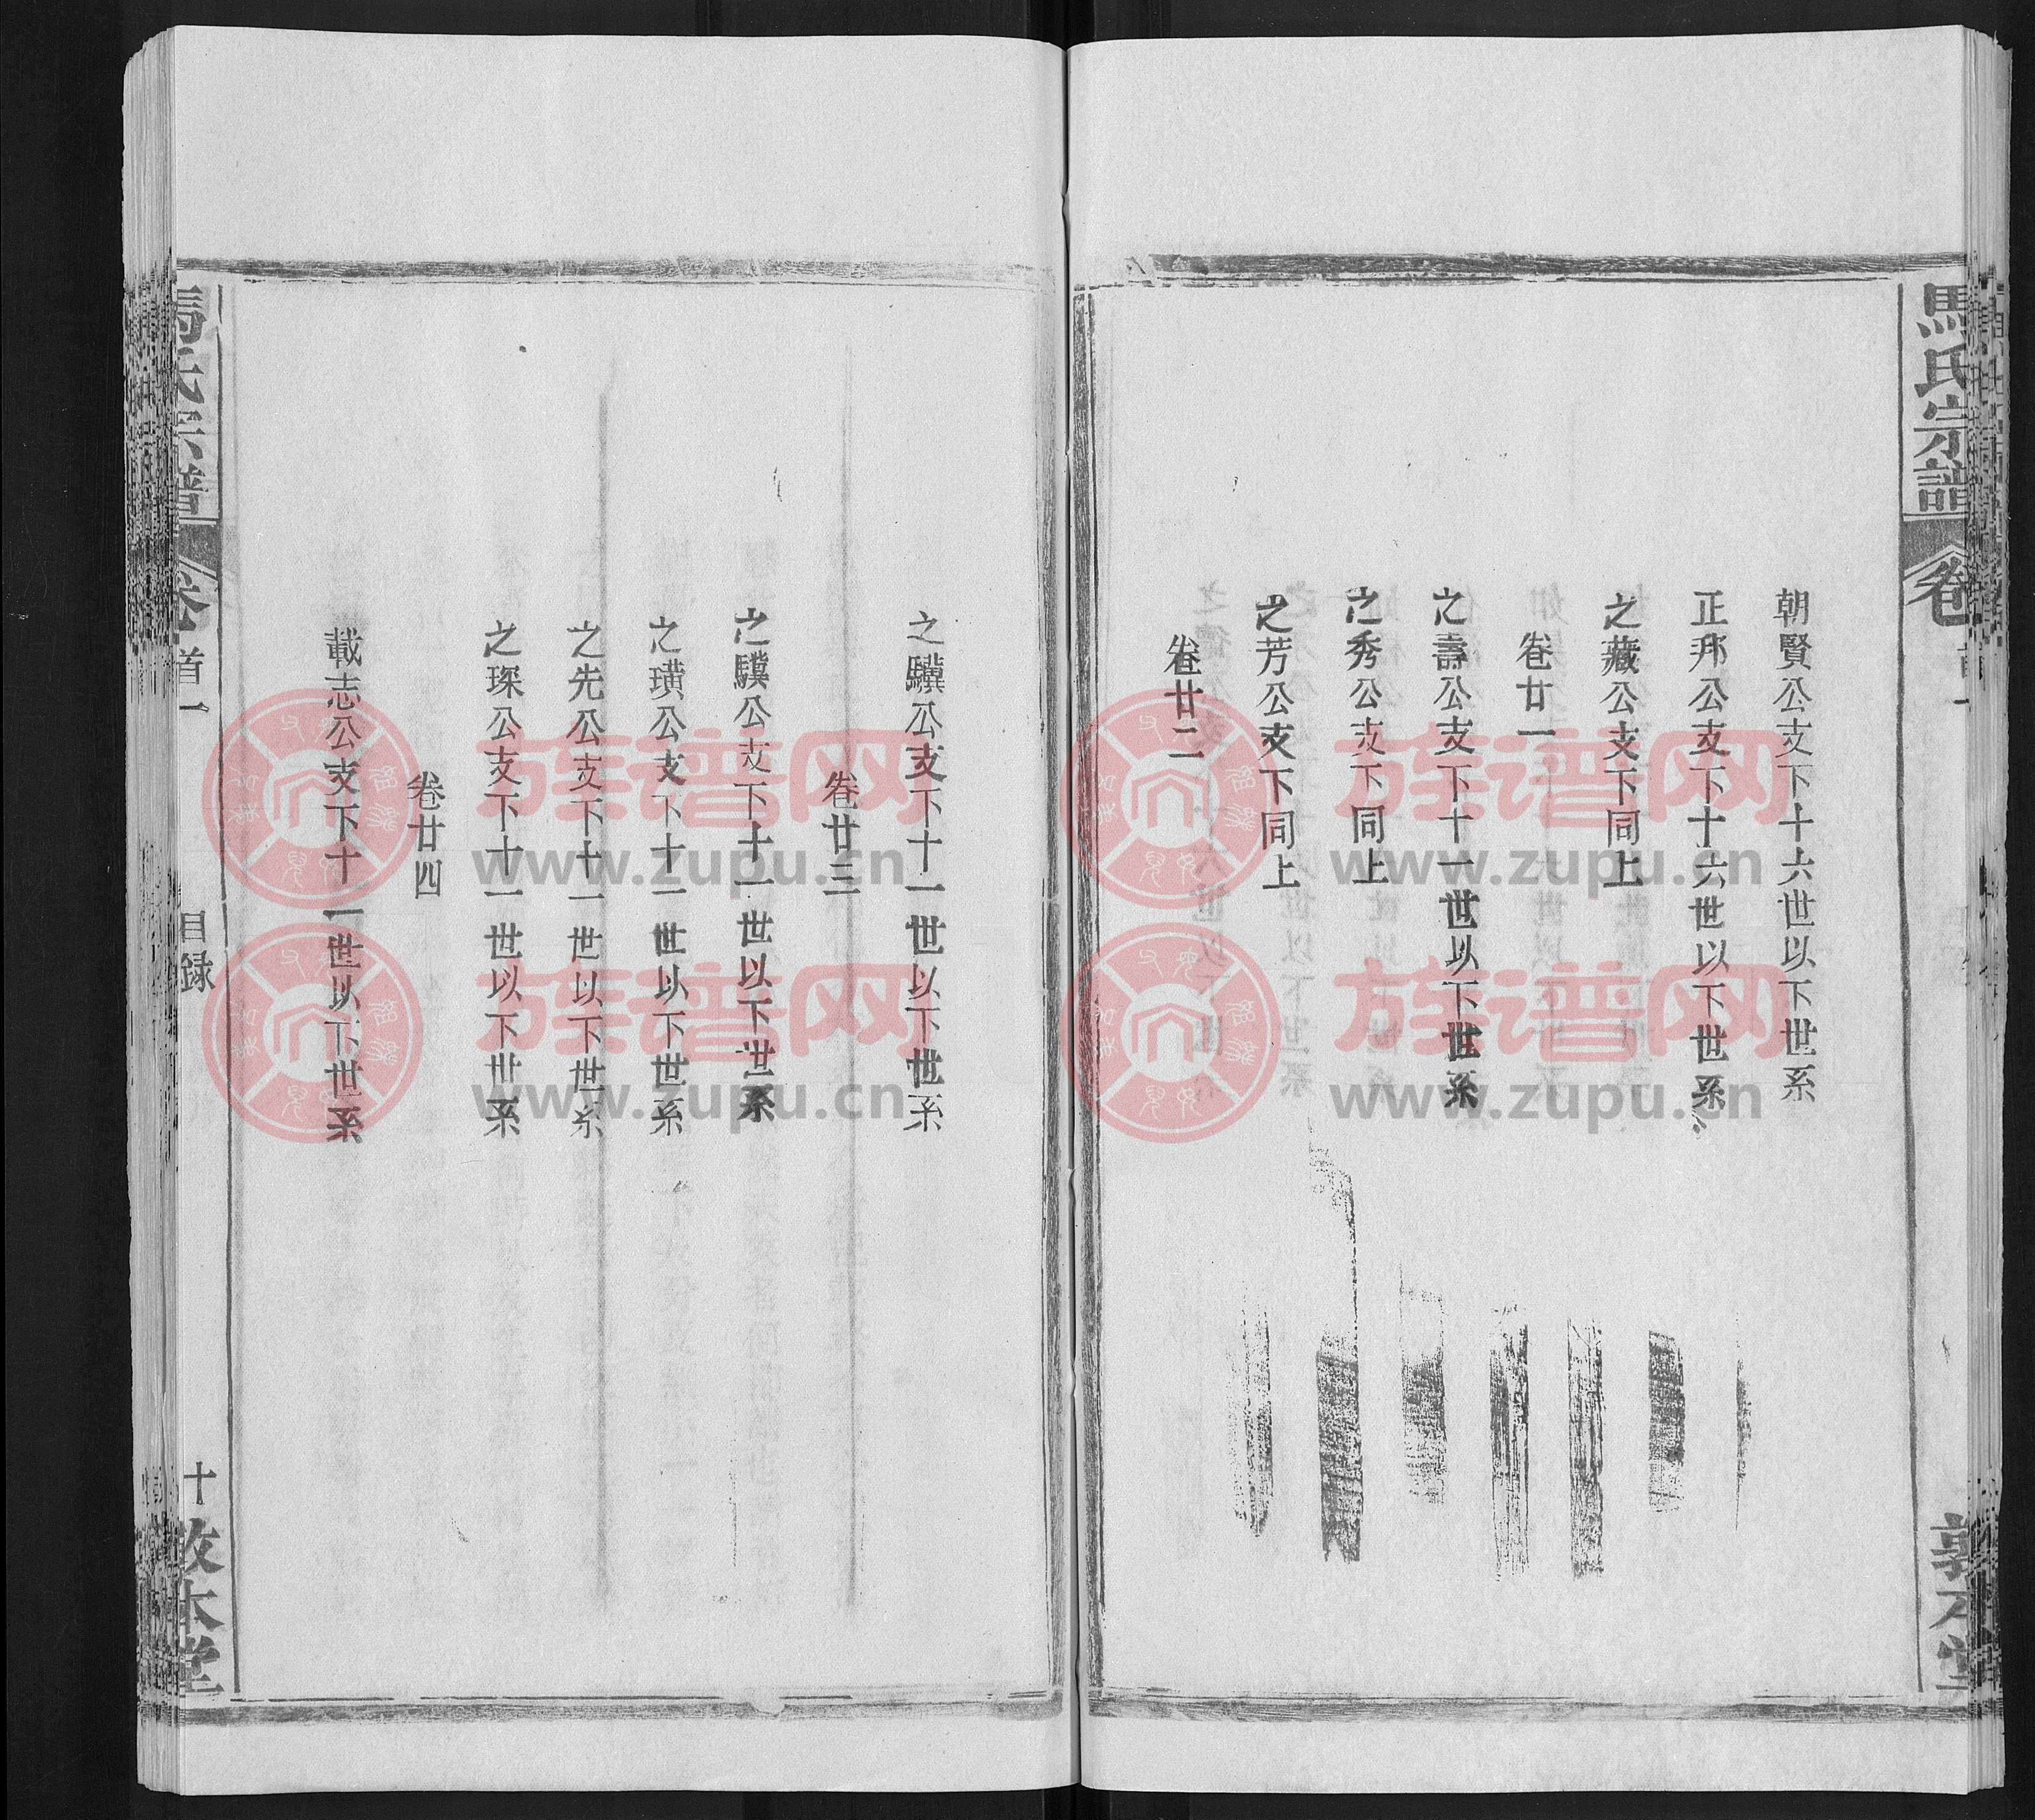 馬氏宗譜
卷首一
朝賢公支下十六世以下世系
正邦公支下十六世以下世系
之藏公支下同上
卷廿一
之壽公支下十一世以下世系
之秀公支下同上
之芳公支下同上
卷廿二
之驥公支下十一世以下世系
卷廿三
之驥公支下十一世以下世系
之璜公支下十一世以下世系
之先公支下十一世以下世系
之琛公支下十一世以下世系
卷廿四
載志公支下十一世以下世系
馬氏宗譜
卷首一
目録
十
敦本堂
族谱网
www.zupu.cn
族谱网
www.zupu.cn
族谱网
www.zupu.cn
族谱网
www.zupu.cn